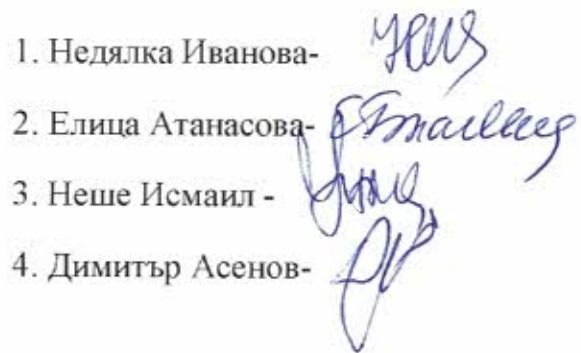 1. Недялка Иванова-
2. Елица Атанасова-
3. Неше Исмаил -
4. Димитър Асенов-